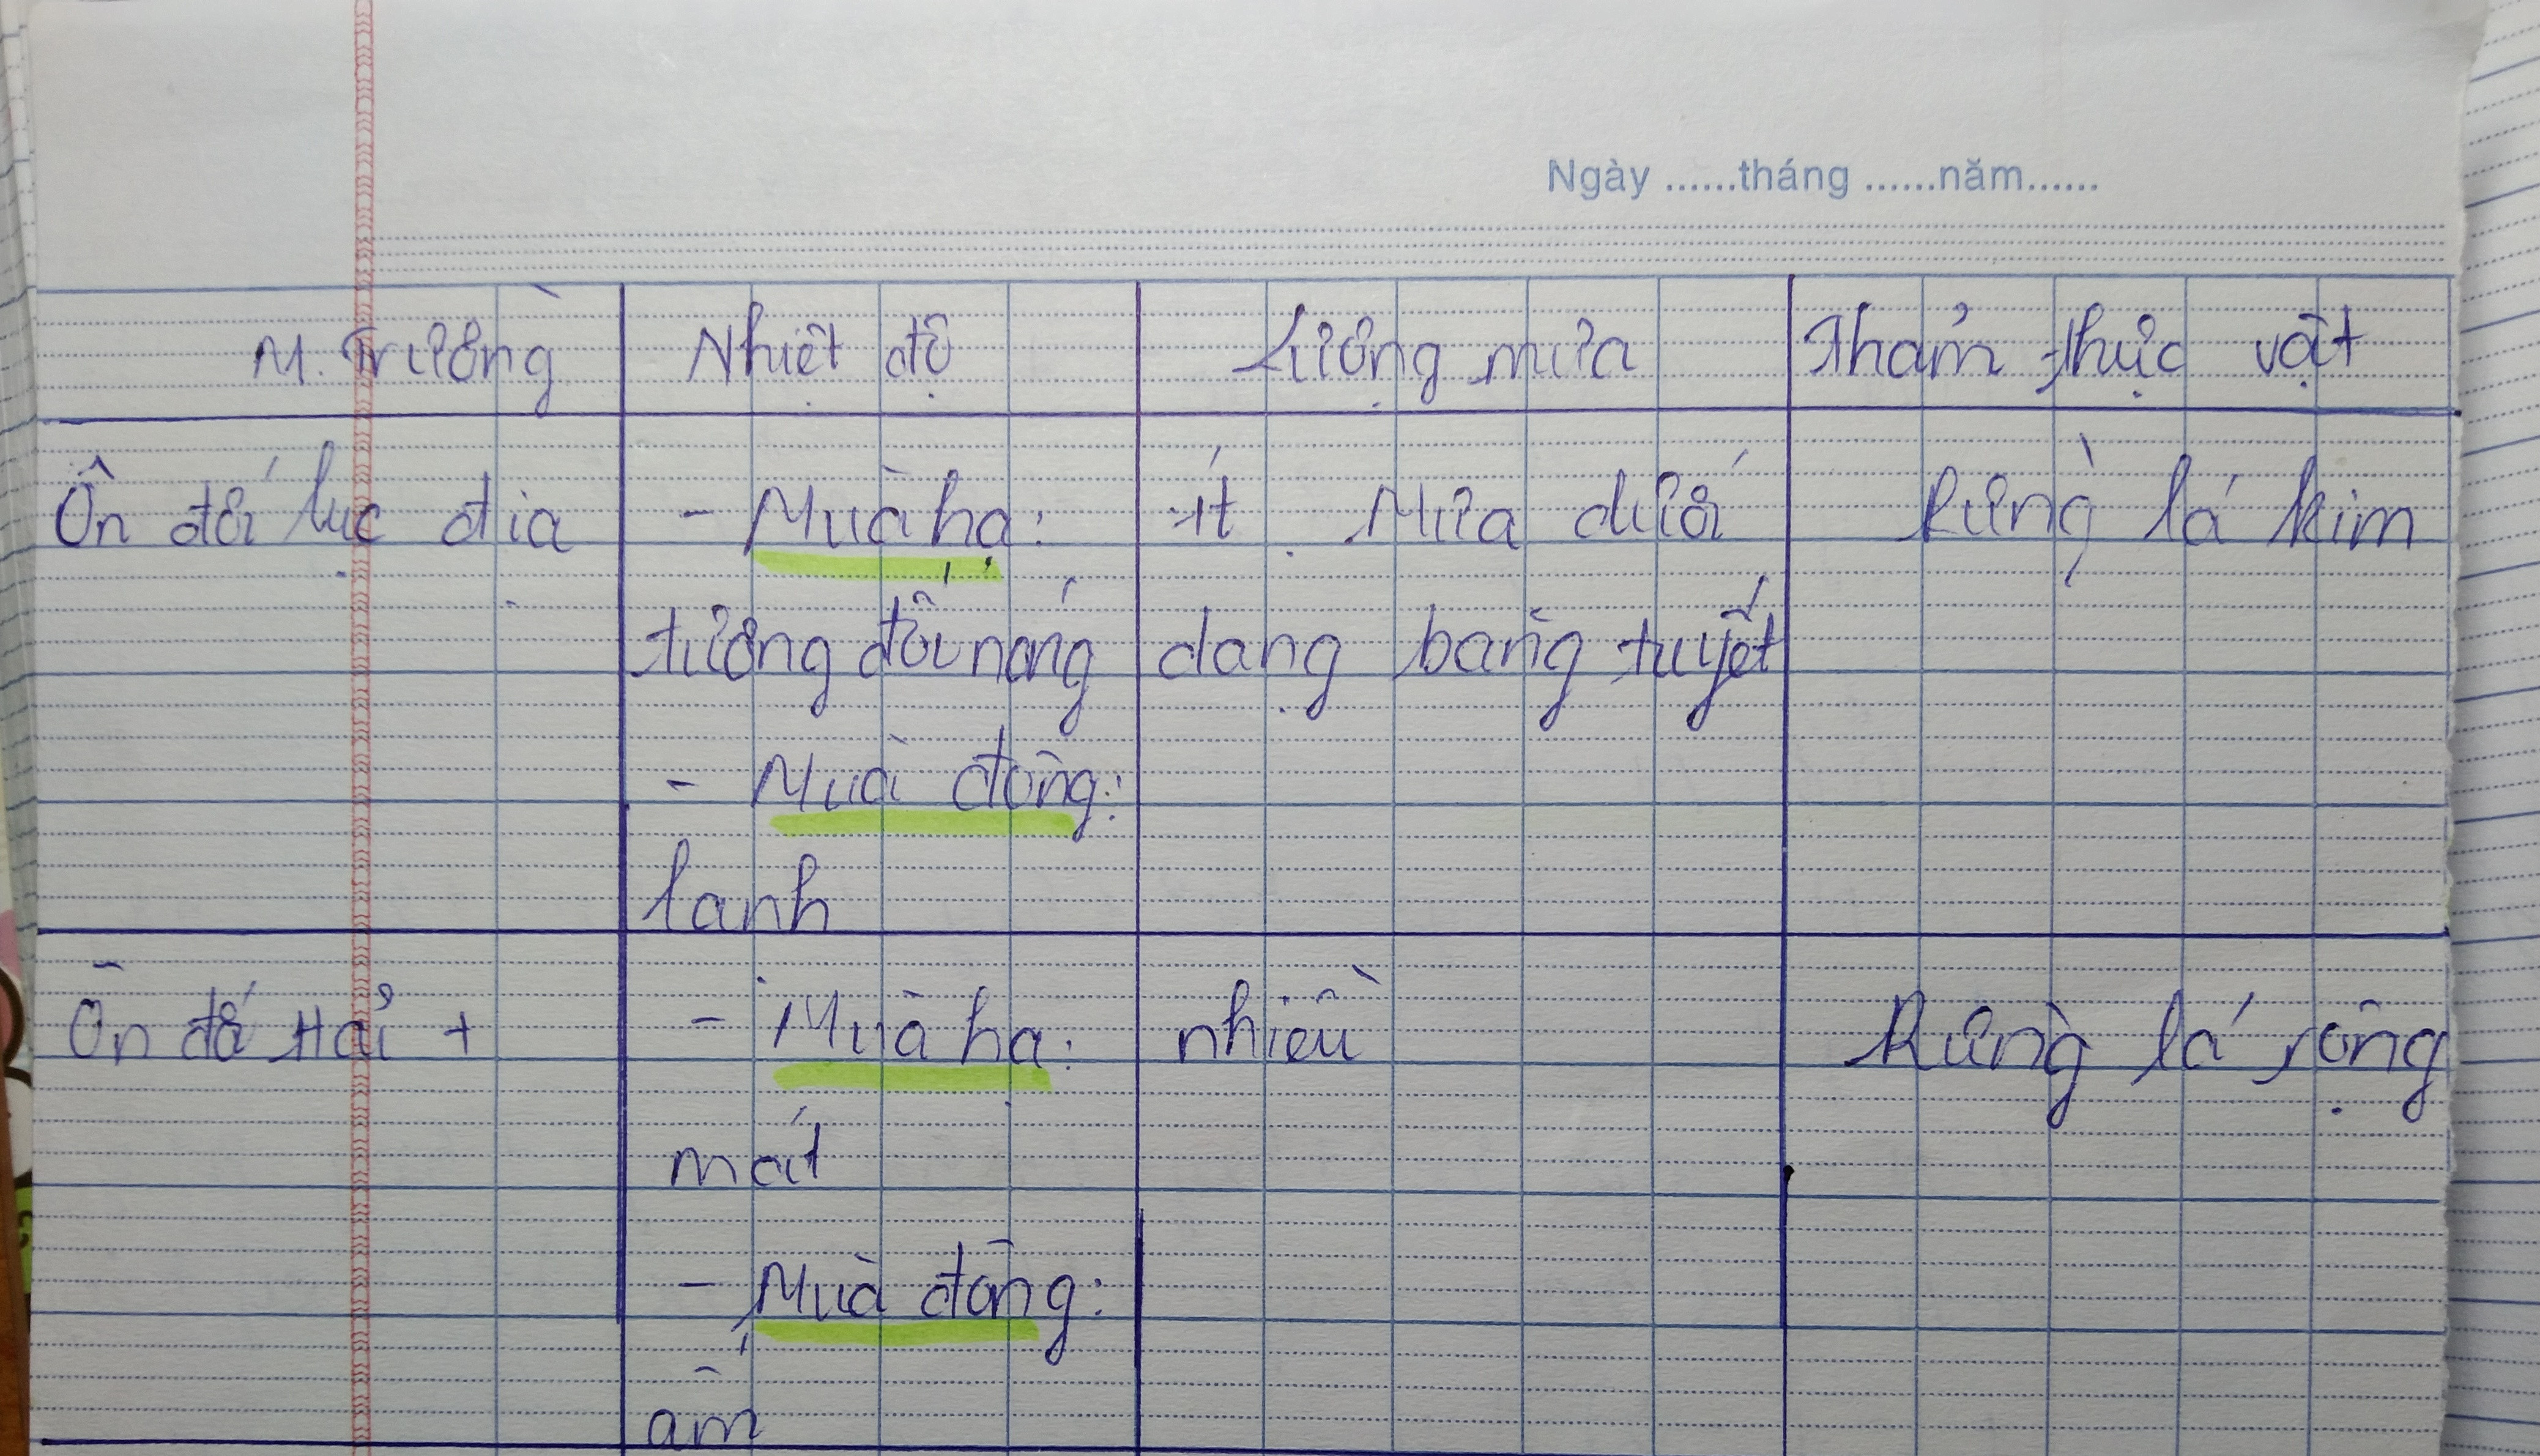 Ngày ......tháng ......năm......
M. Trường Nhiệt độ Lượng mưa Thảm thực vật
Ôn đới lục địa - Mùa hạ: ít. Mưa dưới Rừng lá kim
tương đối nóng dạng băng tuyết
- Mùa đông:
lạnh
Ôn đới Hải + - Mùa hạ: nhiều Rừng lá rộng
mát
- Mùa đông:
ấm